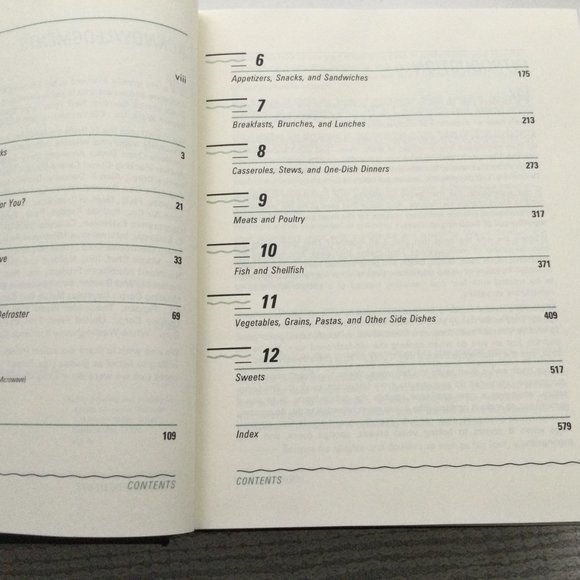 viii
ks
3
or You?
21
ve
33
Defroster
69
Microwave)
109
CONTENTS
6
Appetizers, Snacks, and Sandwiches 175
7
Breakfasts, Brunches, and Lunches 213
8
Casseroles, Stews, and One-Dish Dinners 273
9
Meats and Poultry 317
10
Fish and Shellfish 371
11
Vegetables, Grains, Pastas, and Other Side Dishes 409
12
Sweets 517
Index 579
CONTENTS